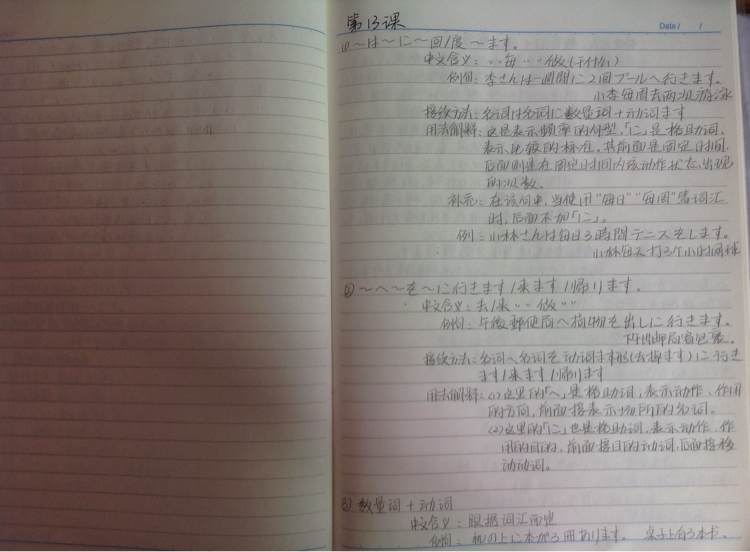 第13课
Date / /
(1) ～は～に～回/度～ます。
中文含义：‥每‥做(干什么)
例句：李さんは一週間に2回プールへ行きます。
小李每周去两次游泳
接续方法：名词は名词に数量词+动词ます
用法解释：这是表示频率的句型,「に」是格助词,
表示比较的标准,其前面是固定时间,
后面则是在固定时间内该动作状态出现
的次数。
补充：在该句中,当使用"每日""每周"等词汇
时,后面不加「に」。
例：小林さんは毎日3時間テニスをします。
小林每天打3个小时网球
(2) ～へ～を～に行きます/来ます/帰ります。
中文含义：去/来‥做‥
例句：午後郵便局へ荷物を出しに行きます。
下午去邮局寄包裹。
接续方法：名词へ名词を动词ます形(去掉ます)に行き
ます/来ます/帰ります
用法解释：(1)这里的「へ」是格助词,表示动作、作用
的方向,前面接表示场所的名词。
(2)这里的「に」也是格助词,表示动作、作
用的目的,前面接目的动词,后面接移
动动词。
(3) 数量词+动词
中文含义：根据词汇而定
例句：机の上に本が3冊あります。 桌子上有3本书。